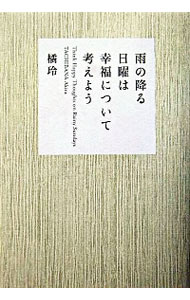 雨の降る
日曜は
幸福について
考えよう
Think Happy Thoughts on Rainy Sundays
TACHIBANA Akira
橘玲